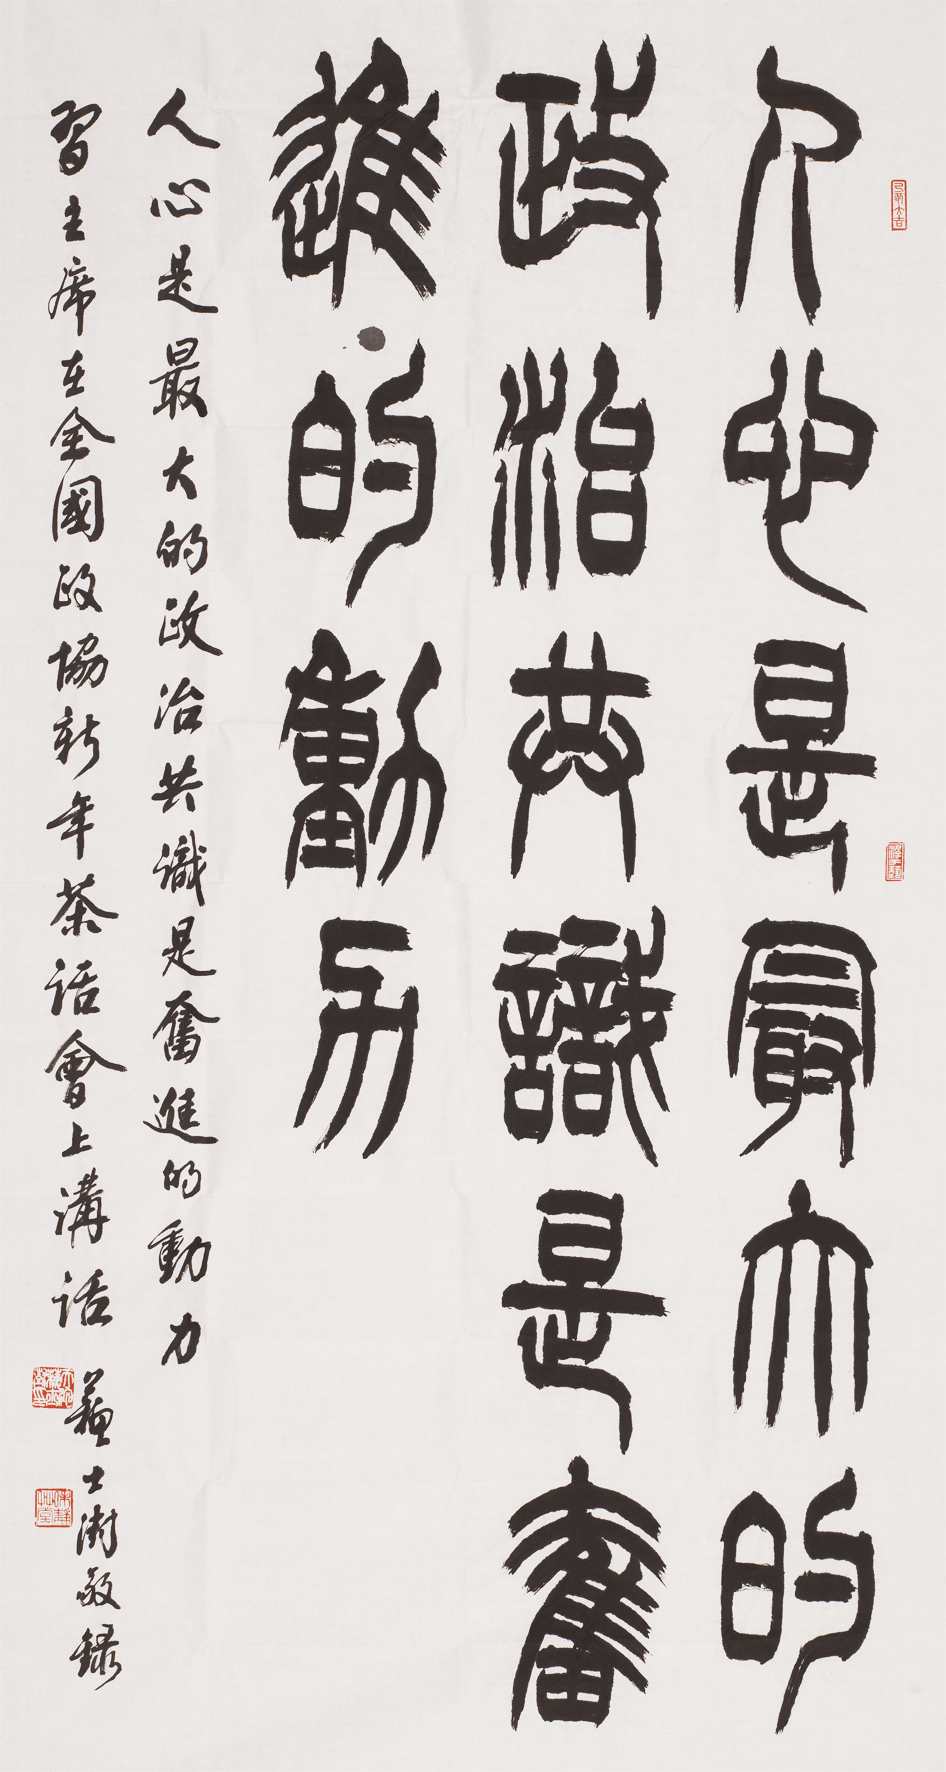 人心是最大的
政治共識是奮
進的動力
人心是最大的政治共識是奮進的動力
習主席在全國政協新年茶話會上講話 蘇士澍敬録